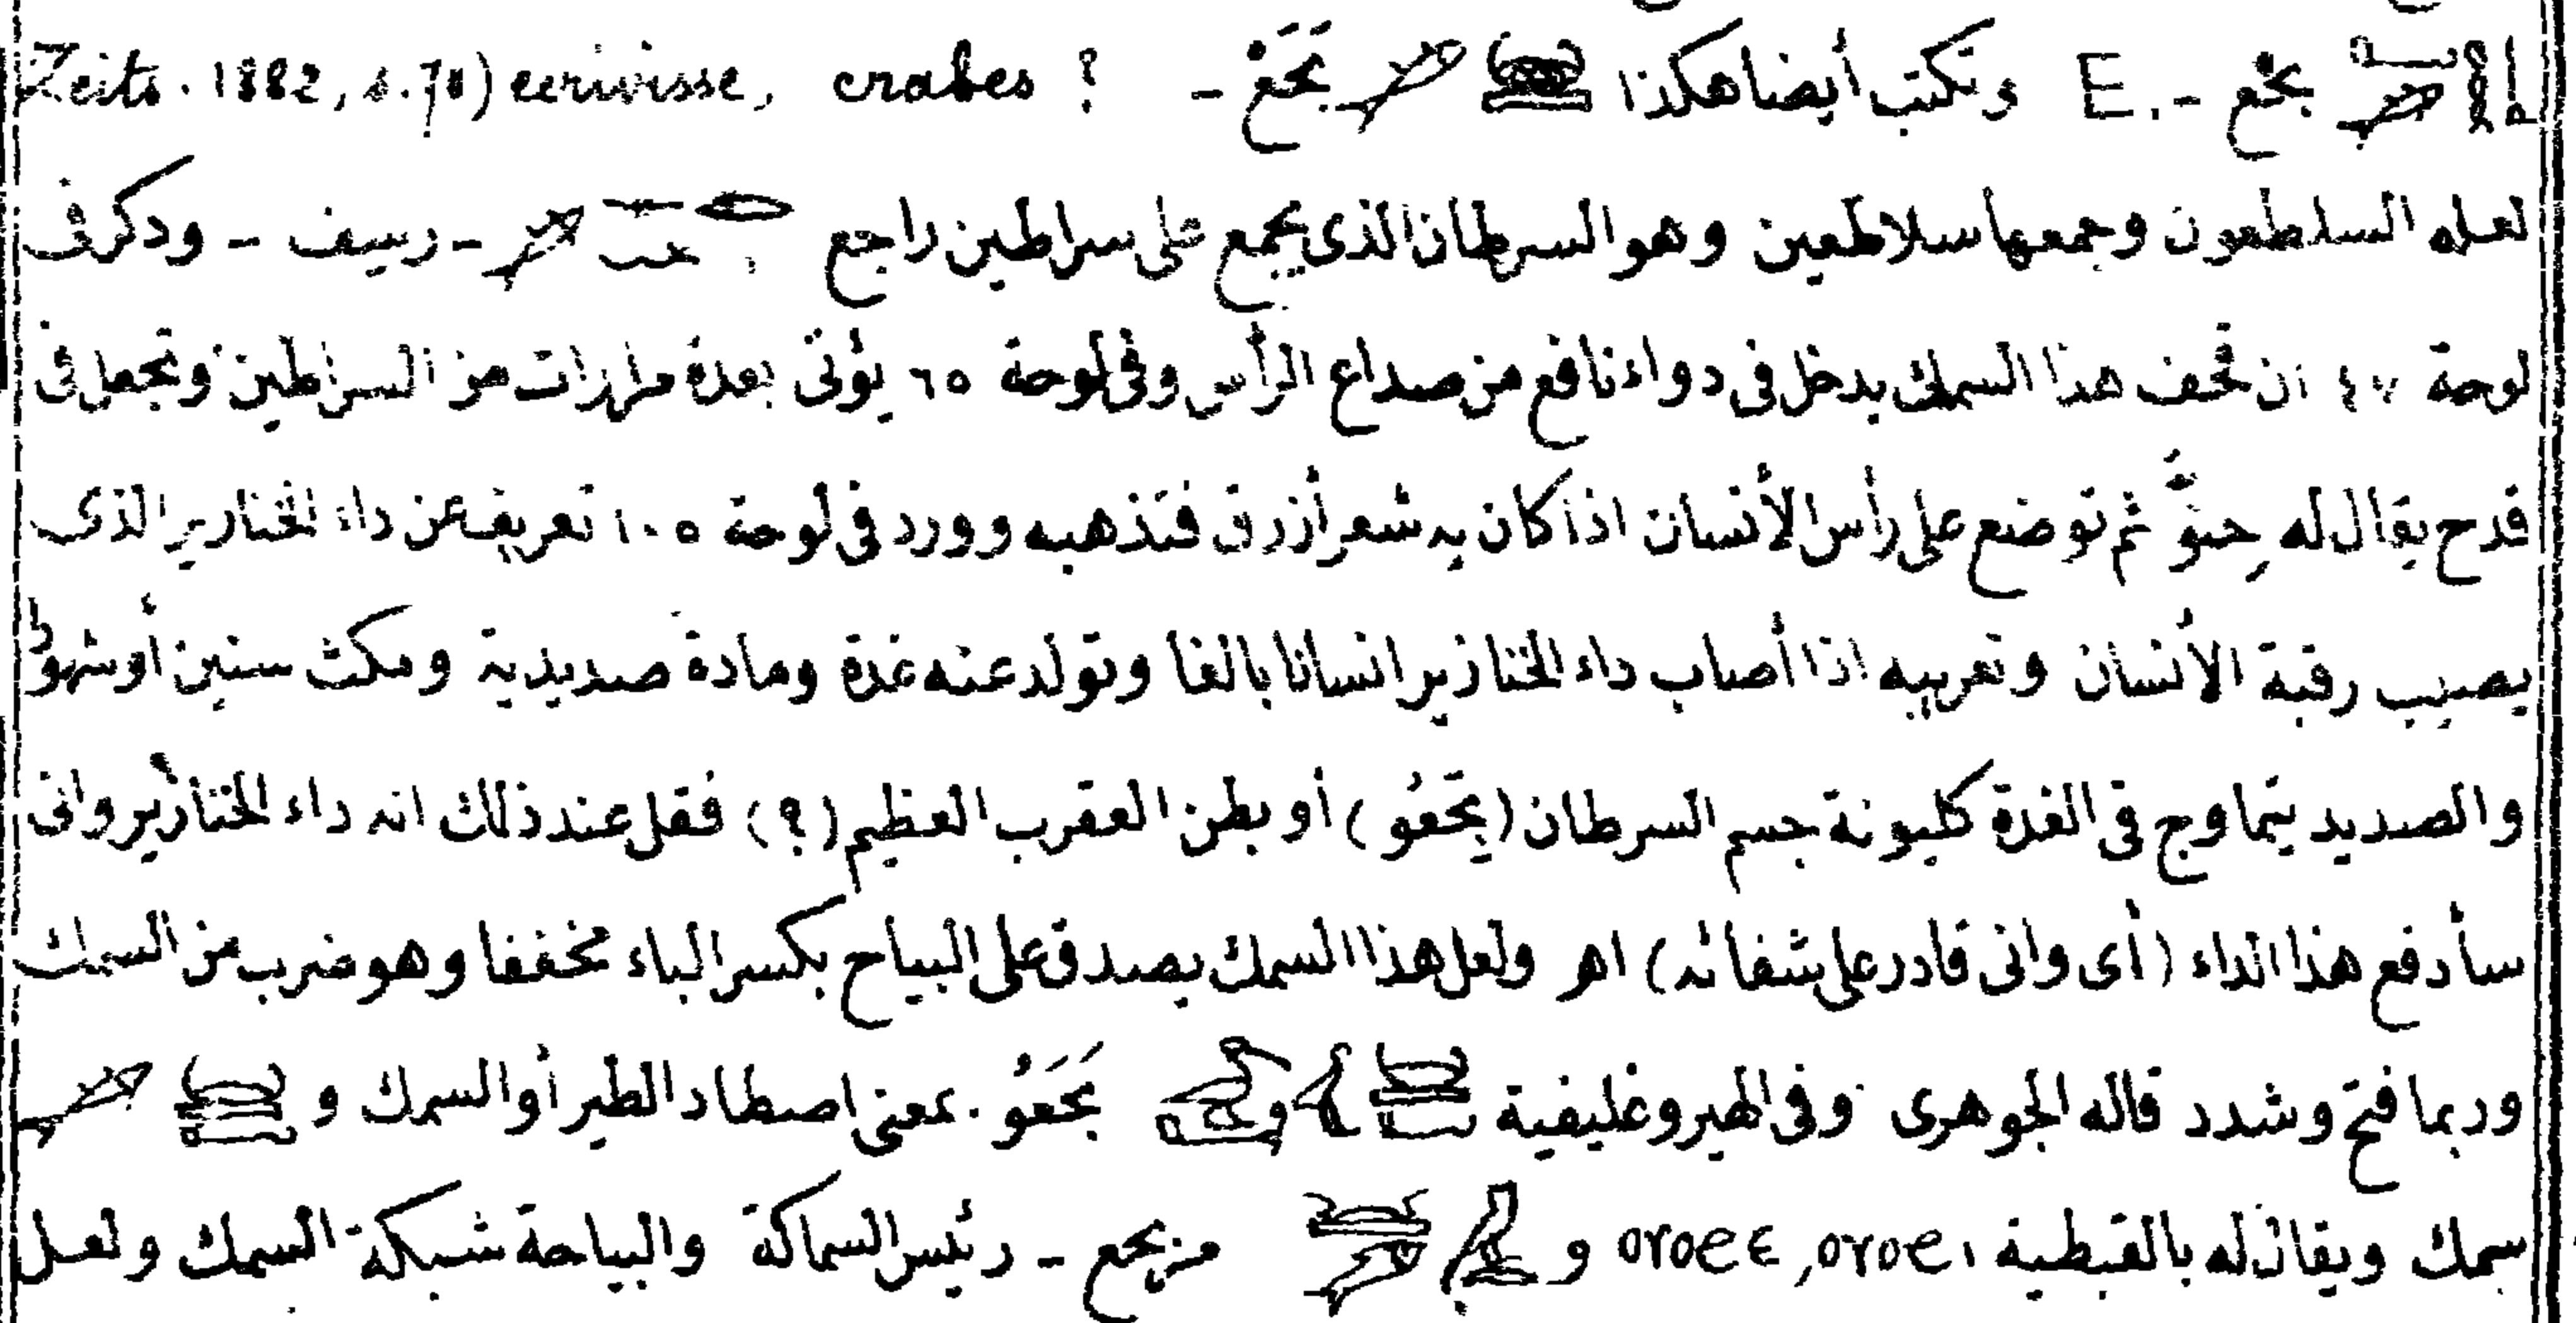 بحع -. E وتكتب أيضا هكذا بَحَعْ - Zeits. 1882, s. 70) ecrivisse, crabes ?
لعله السلطعون وجمعها سلاطعين وهو السرطان الذى يجمع على سراطين راجع - رسيف - وذكر فى
لوحة ٤٧ ان قحف هذا السمك يدخل فى دواء نافع من صداع الرأس وفى لوحة ٦٥ يؤتى بعدة مرارات من السراطين وتجعل فى
قدح يقال له حِنوٌّ ثم توضع على رأس الأنسان اذا كان به شعر أزرق فتذهبه وورد فى لوحة ١٠٥ تعريف عن داء الخنازير الذى
يصيب رقبة الأنسان وتعريبه اذا أصاب داء الخنازير انسانا بالغا وتولد عنه غدة ومادة صديدية ومكث سنين أو شهورا
والصديد يتماوج فى الغدة كليونة جسم السرطان (بِحَعُو) أو بطن العقرب العظيم (؟) فقل عند ذلك انه داء الخنازير وانى
سأدفع هذا الداء (أى وانى قادر على شفائه) اهر ولعل هذا السمك يصدق على البياح بكسر الباء مخففا وهو ضرب من السمك
وربما فتح وشدد قاله الجوهرى وفى الهيروغليفية بَحَعُو. بمعنى اصطاد الطير أو السمك و
سمك ويقال له بالقبطية ⲟⲩⲟϩⲓ, ⲟⲩⲟϩⲉ و من بحع - رئيس السماكة والبياحة شبكة السمك ولعل